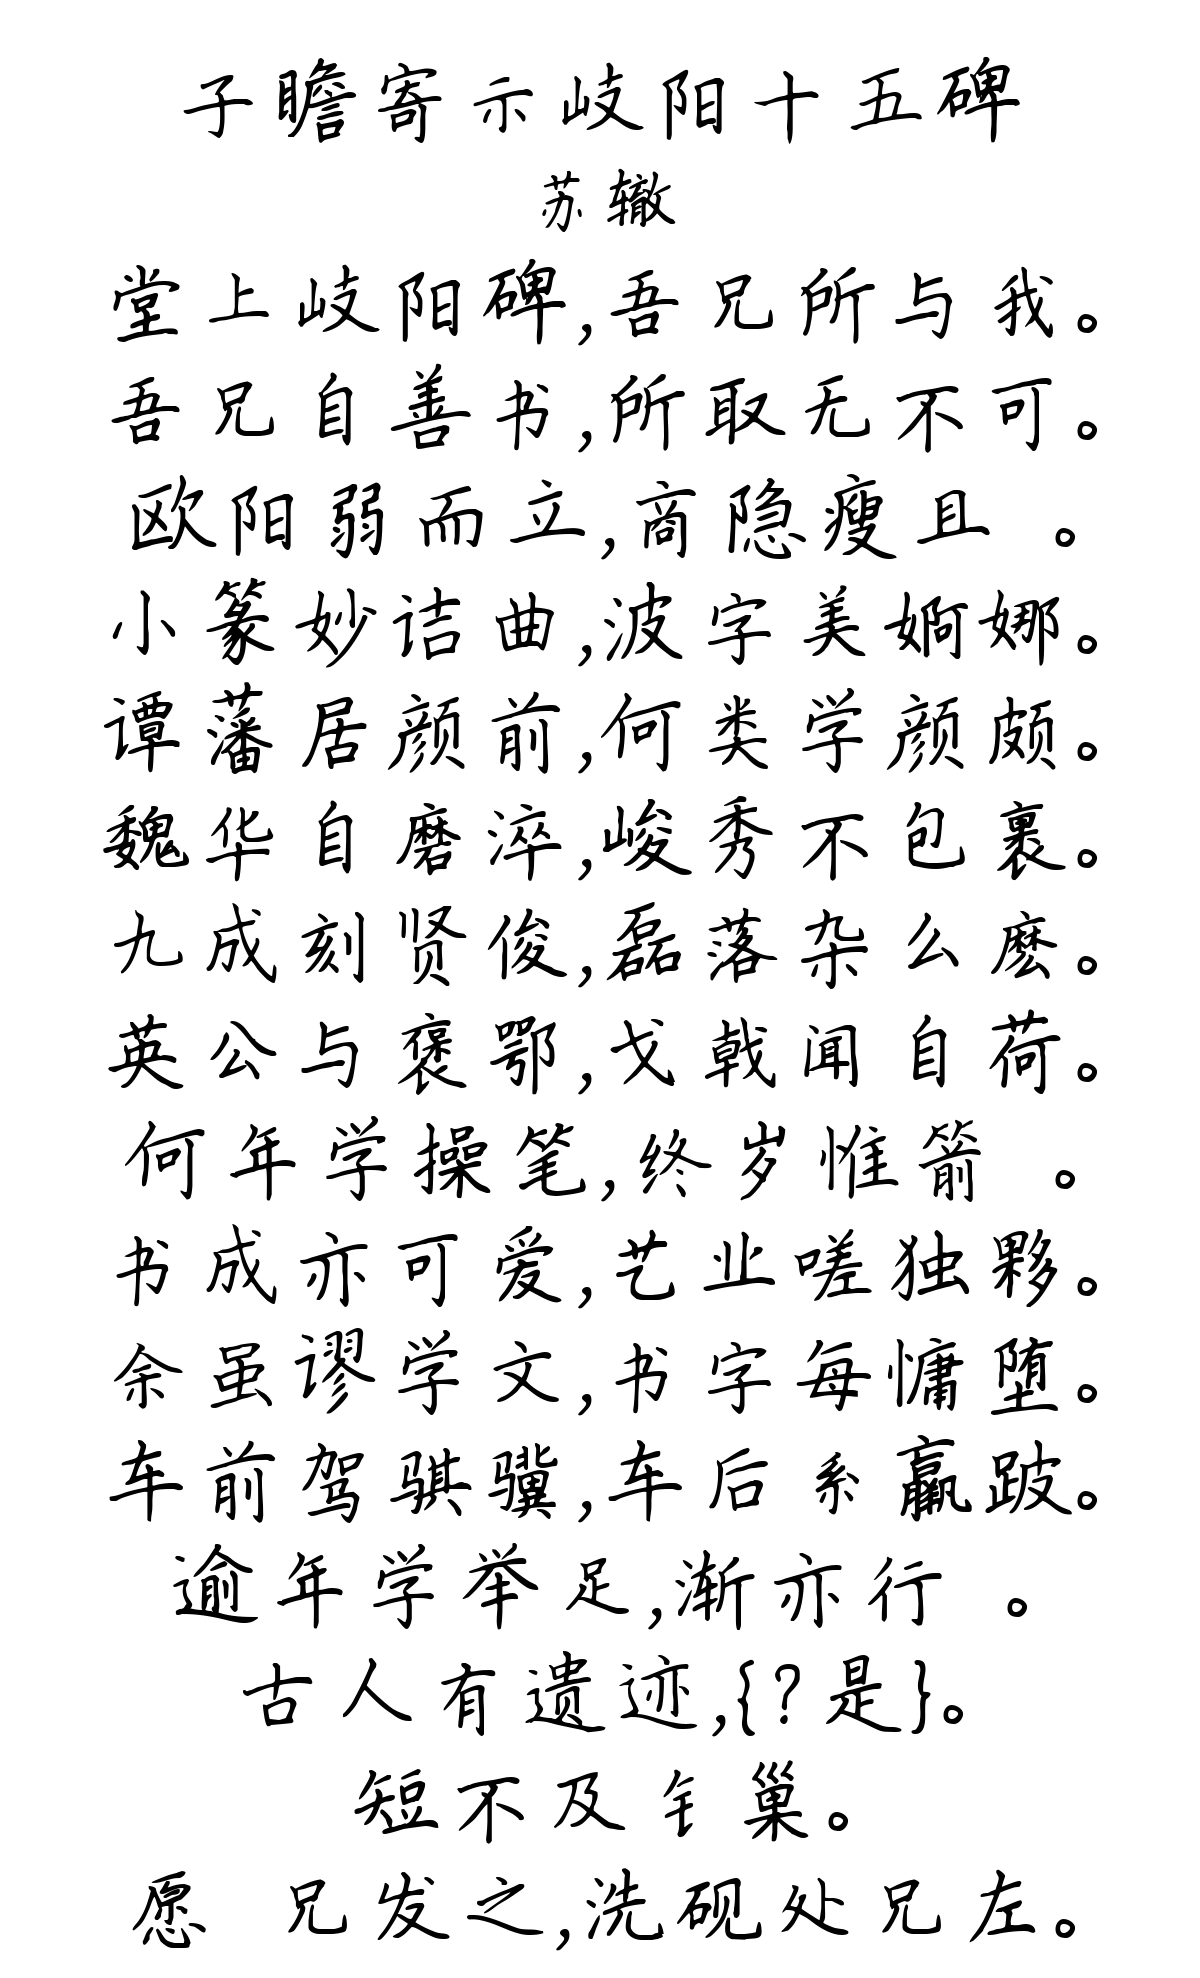 子瞻寄示岐阳十五碑
苏辙
堂上岐阳碑,吾兄所与我。
吾兄自善书,所取无不可。
欧阳弱而立,商隐瘦且 。
小篆妙诘曲,波字美婀娜。
谭藩居颜前,何类学颜颇。
魏华自磨淬,峻秀不包裹。
九成刻贤俊,磊落杂么麽。
英公与褒鄂,戈戟闻自荷。
何年学操笔,终岁惟箭 。
书成亦可爱,艺业嗟独夥。
余虽谬学文,书字每慵堕。
车前驾骐骥,车后系羸跛。
逾年学举足,渐亦行 。
古人有遗迹,{?是}。
短不及钅巢。
愿 兄发之,洗砚处兄左。